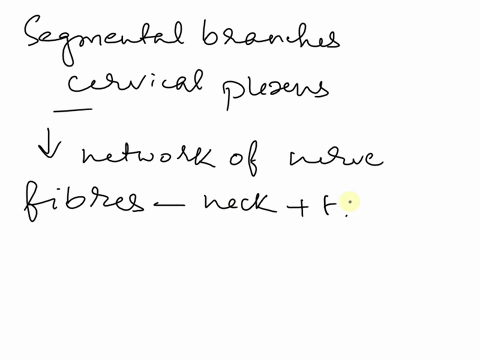 Segmental branches
cervical plexus
↓ network of nerve
fibres — neck +